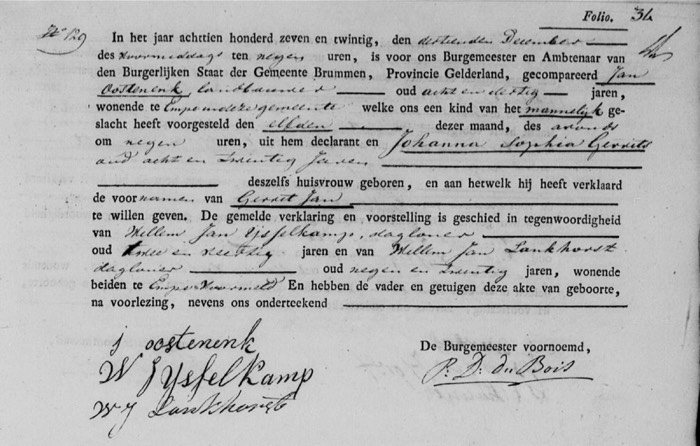 Folio. 34
N° 129
In het jaar achttien honderd zeven en twintig, den dertienden December
des voormiddags ten negen uren, is voor ons Burgemeester en Ambtenaar van
den Burgerlijken Staat der Gemeente Brummen, Provincie Gelderland, gecompareerd Jan
Oostenenk, landbouwer oud acht en dertig jaren,
wonende te Empe in deze gemeente welke ons een kind van het mannelijk ge-
slacht heeft voorgesteld den elfden dezer maand, des avonds
om negen uren, uit hem declarant en Johanna Sophia Gerrits
oud acht en twintig Jaren
deszelfs huisvrouw geboren, en aan hetwelk hij heeft verklaard
de voornamen van Gerrit Jan
te willen geven. De gemelde verklaring en voorstelling is geschied in tegenwoordigheid
van Willem Jan Ysselkamp, dagloner
oud twee en jaren en van Willem Jan Lankhorst
dagloner oud negen en twintig jaren, wonende
beiden te Empe voormeld En hebben de vader en getuigen deze akte van geboorte,
na voorlezing, nevens ons onderteekend
De Burgemeester voornoemd,
P. D. du Bois
j oostenenk
W J Ysselkamp
W J Lankhorst